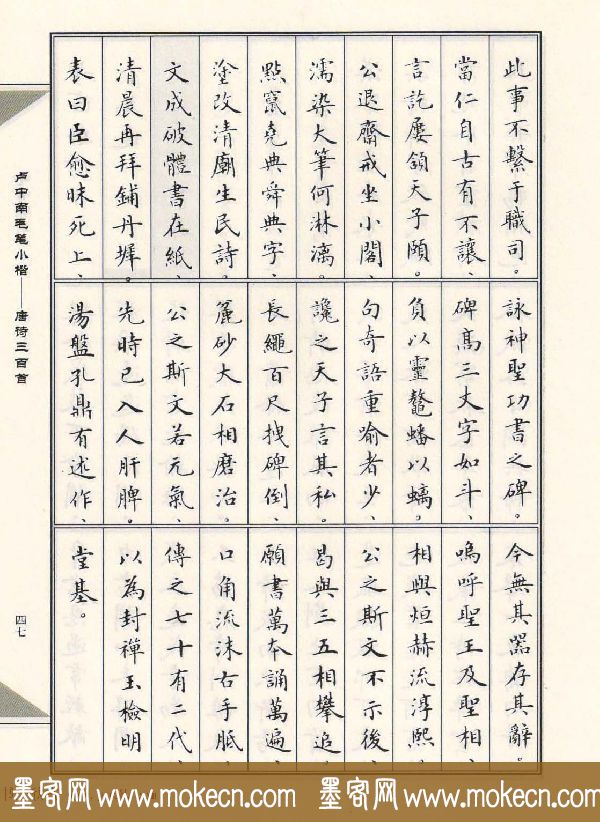 此事不繫于職司。
當仁自古有不讓、
言訖屢頷天子頤。
公退齋戒坐小閣、
濡染大筆何淋漓。
點竄堯典舜典字、
塗改清廟生民詩。
文成破體書在紙、
清晨再拜鋪丹墀。
表曰臣愈昧死上、
詠神聖功書之碑。
碑高三丈字如斗、
負以靈鼇蟠以螭。
句奇語重喻者少、
讒之天子言其私。
長繩百尺拽碑倒、
麄砂大石相磨治。
公之斯文若元氣、
先時已入人肝脾。
湯盤孔鼎有述作、
今無其器存其辭。
嗚呼聖王及聖相、
相與烜赫流淳熙。
公之斯文不示後、
曷與三五相攀追。
願書萬本誦萬遍、
口角流沫右手胝。
傳之七十有二代、
以為封禪玉檢明
堂基。
卢中南毛笔小楷——唐诗三百首
四七
墨客网 www.mokecn.com 墨客网 www.mokecn.com